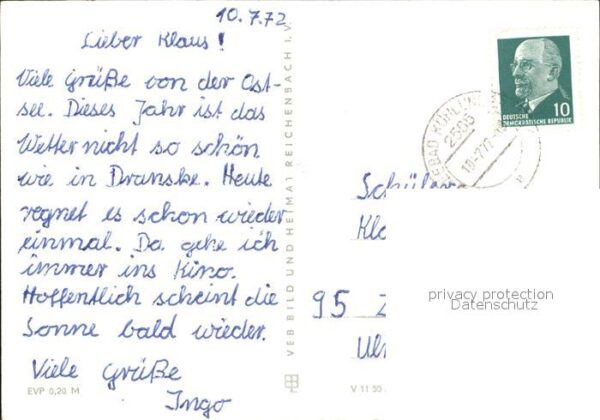 10.7.72
Lieber Klaus!
Viele Grüße von der Ost-
see. Dieses Jahr ist das
Wetter nicht so schön
wie in Dranske. Heute
regnet es schon wieder
einmal. Da gehe ich
immer ins Kino.
Hoffentlich scheint die
Sonne bald wieder.
Viele Grüße
Ingo
EVP 0,20 M
VEB BILD UND HEIMAT REICHENBACH I. V.
V 11 50
10
DEUTSCHE
DEMOKRATISCHE REPUBLIK
2565
Schüler
Kla
95 Z
privacy protection
Datenschutz